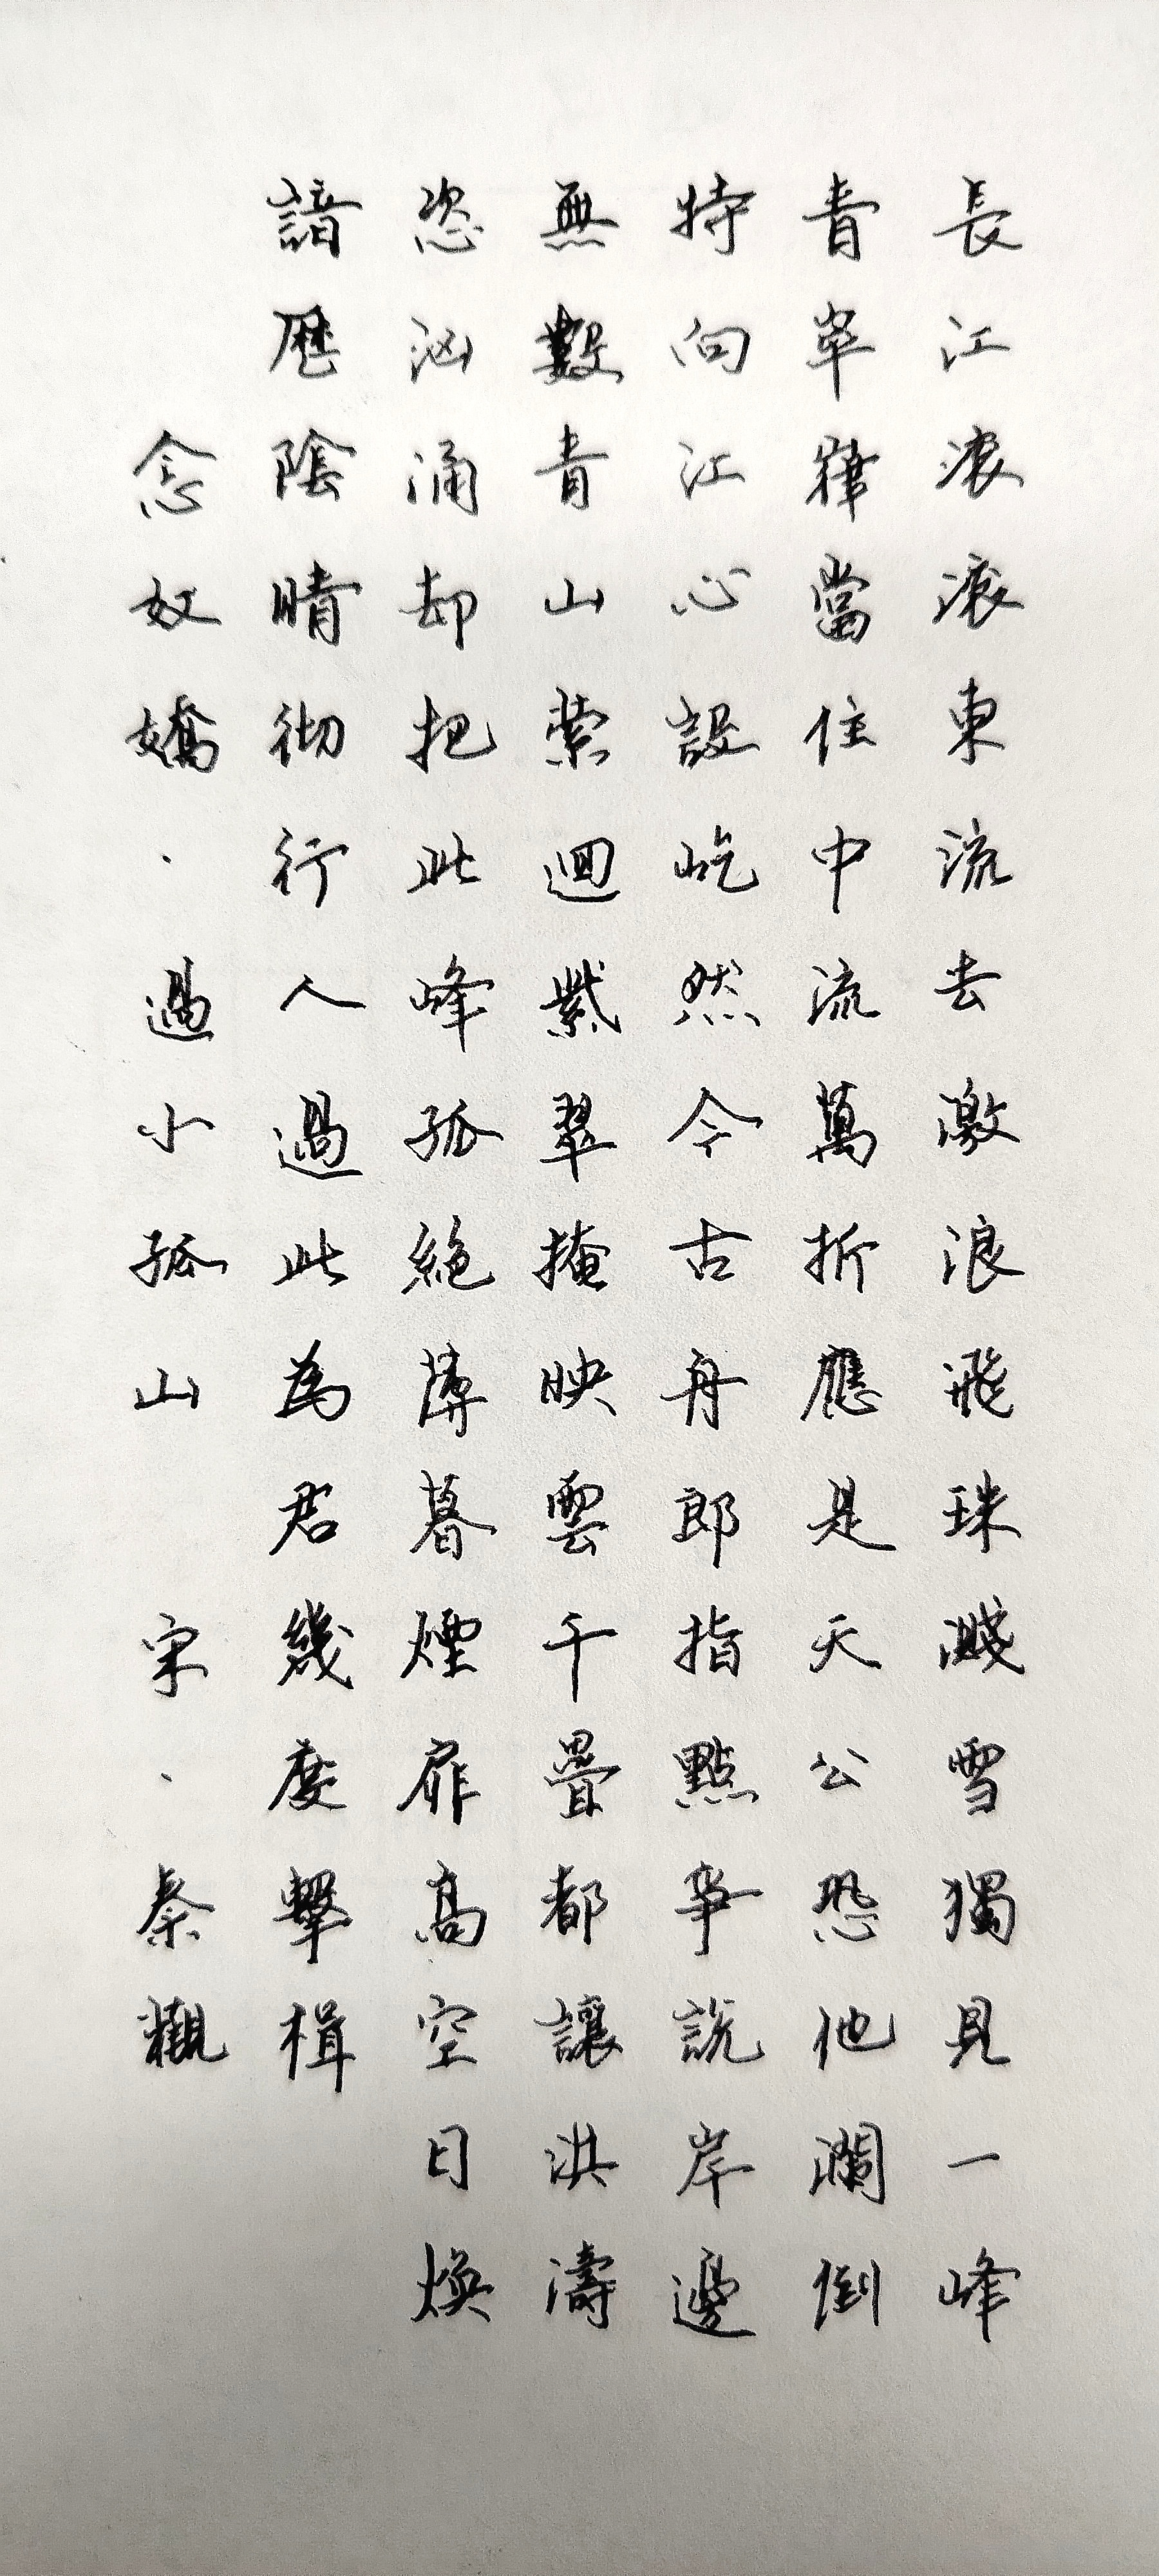 長江滾滾東流去激浪飛珠濺雪獨見一峰
青崒嵂當住中流萬折應是天公恐他瀾倒
特向江心設屹然今古舟郎指點爭說岸邊
無數青山縈迴紫翠掩映雲千疊都讓洪濤
恣洶涌却把此峰孤絕薄暮煙扉高空日煥
諳歷陰晴彻行人過此為君幾度擊楫
念奴嬌·過小孤山 宋·秦觀